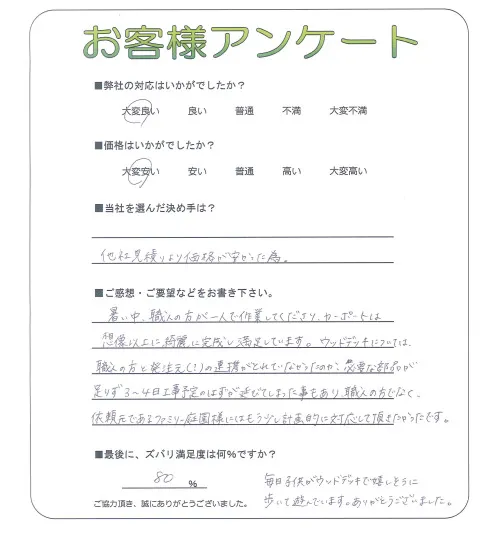 お客様アンケート
■弊社の対応はいかがでしたか？
大変良い 良い 普通 不満 大変不満
■価格はいかがでしたか？
大変安い 安い 普通 高い 大変高い
■当社を選んだ決め手は？
他社見積りより価格が安かった為。
■ご感想・ご要望などをお書き下さい。
暑い中、職人の方が一人で作業してくださり、カーポートは
想像以上に綺麗に完成し満足しています。ウッドデッキについては、
職人の方と発注元(?)の連携がとれていなかったのか、必要な部品が
足りず3〜4日工事予定のはずが延びてしまった事もあり、職人の方でなく、
依頼元であるファミリー庭園様にはもう少し計画的に対応して頂きたかったです。
■最後に、ズバリ満足度は何％ですか？
80 %
毎日子供がウッドデッキで嬉しそうに
歩いて遊んでいます。ありがとうございました。
ご協力頂き、誠にありがとうございました。